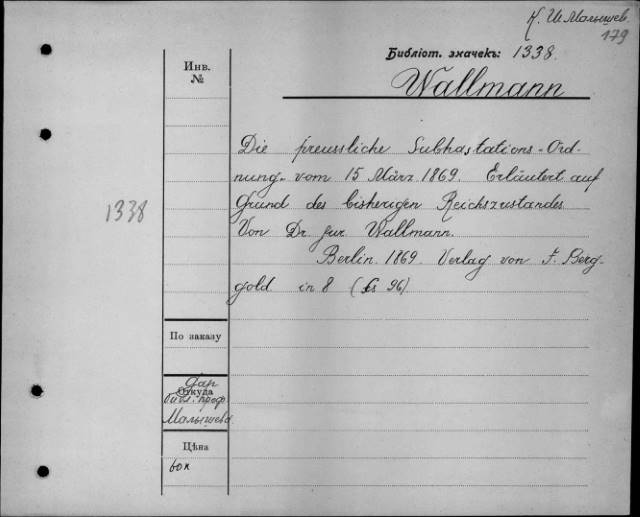 К. И. Малышев.
179
Библіот. значекъ: 1338.
Wallmann
Инв.
№
Die preussliche Subhastations-Ord-
nung. vom 15 März 1869. Erläutert auf
Grund des bisherigen Reichszustandes
Von Dr. jur. Wallmann.
Berlin. 1869. Verlag von F. Berg-
gold in 8 (96)
1338
По заказу
Дар
Откуда
Библ. проф.
Малышева
Цѣна
60 к